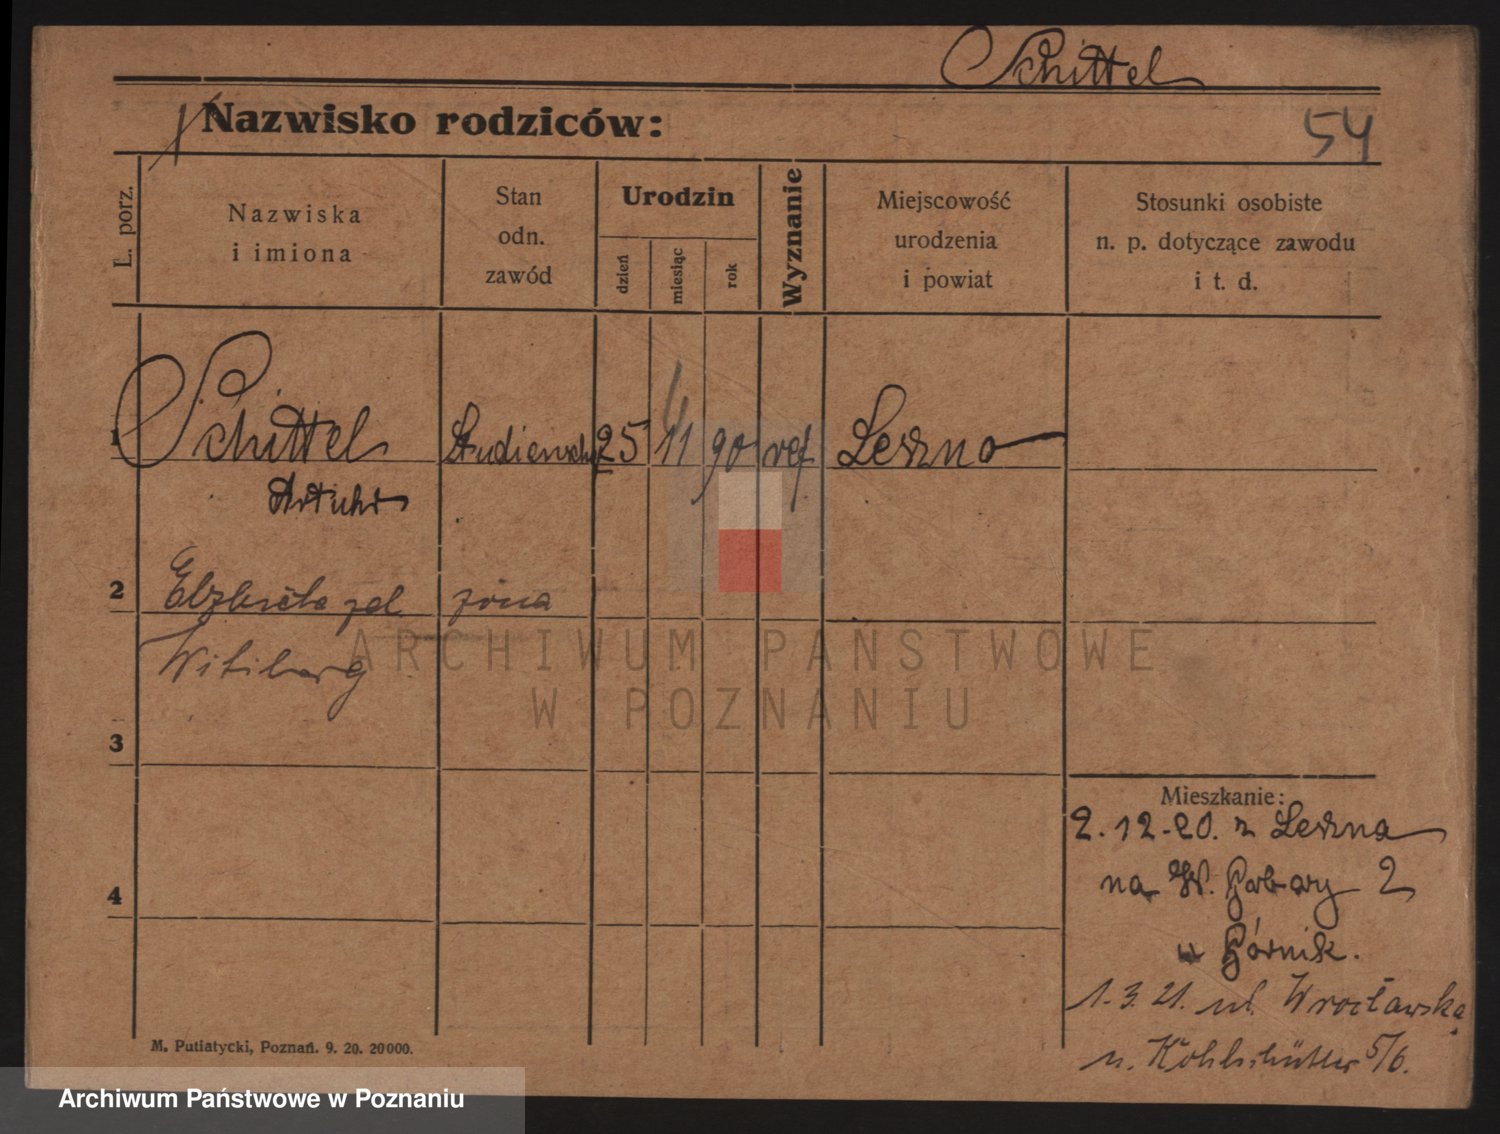 Schittel
Nazwisko rodziców:
54
L. porz.
Nazwiska
i imiona
Stan
odn.
zawód
Urodzin
dzień
miesiąc
rok
Wyznanie
Miejscowość
urodzenia
i powiat
Stosunki osobiste
n. p. dotyczące zawodu
i t. d.
1 Schittel 25 11 90 Leszno
Arthur
2 żona
3
4
Mieszkanie:
2.12.20. z Leszna
na W. Garbary 2
u Górnik.
1.3.21. ul. Wrocławska
u. 5/6.
M. Putiatycki, Poznań. 9. 20. 20000.
ARCHIWUM PAŃSTWOWE
W POZNANIU
Archiwum Państwowe w Poznaniu